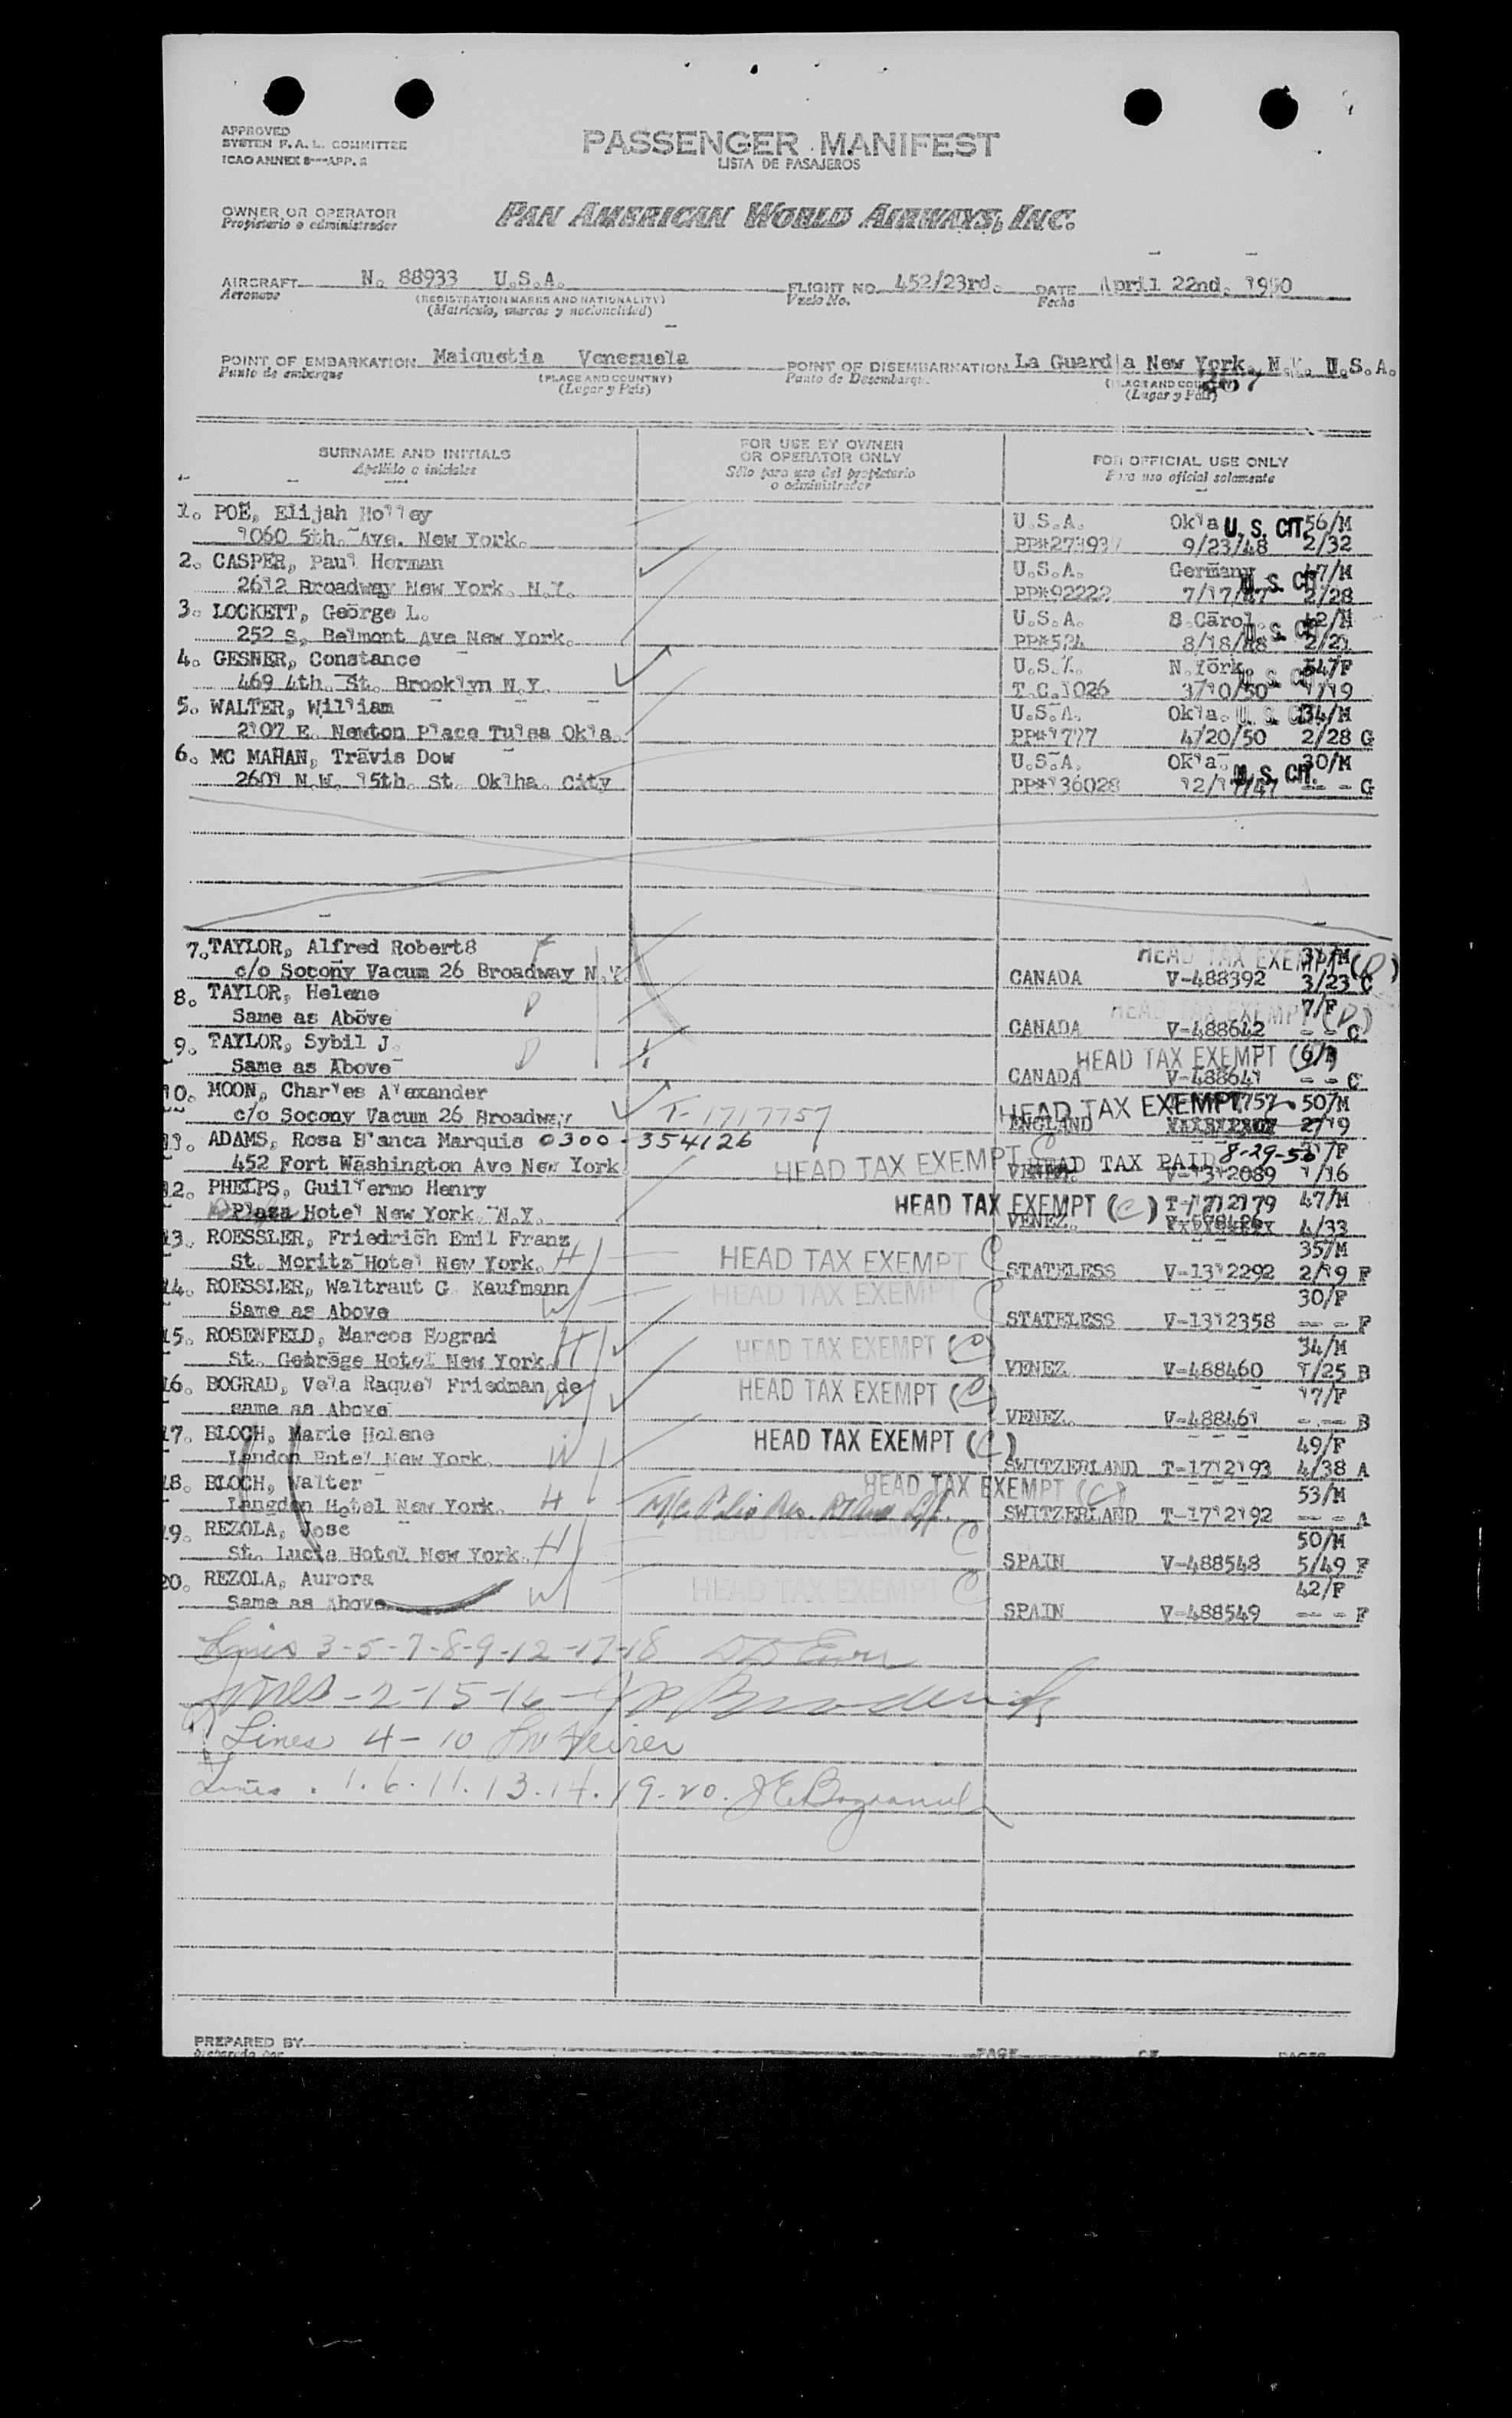 APPROVED
SYSTEM F. A. L. COMMITTEE
ICAO ANNEX 8---APP. 2
PASSENGER MANIFEST
LISTA DE PASAJEROS
OWNER OR OPERATOR
Propietario o administrador
PAN AMERICAN WORLD AIRWAYS, INC.
AIRCRAFT N. 88933 U.S.A. FLIGHT NO. 452/23rd. DATE April 22nd. 1950
Aeronave (REGISTRATION MARKS AND NATIONALITY) Vuelo No. Fecha
(Matrícula, marcas y nacionalidad)
POINT OF EMBARKATION Maiquetia Venezuela POINT OF DISEMBARKATION La Guardia New York. N.Y. U.S.A.
Punto de embarque (PLACE AND COUNTRY) Punto de Desembarque (PLACE AND COUNTRY)
(Lugar y País) (Lugar y País)
SURNAME AND INITIALS FOR USE BY OWNER OR OPERATOR ONLY FOR OFFICIAL USE ONLY
Apellido e iniciales Sólo para uso del propietario o administrador Para uso oficial solamente
1. POE, Elijah Holley U.S.A. Okla U.S. CIT. 56/M
1060 5th. Ave. New York. 9/23/48 2/32
2. CASPER, Paul Herman U.S.A. Germany U.S. CIT 47/M
2612 Broadway New York. N.Y. PP*92222 7/17/47 2/28
3. LOCKETT, George L. U.S.A. S.Carol. U.S. CIT 42/M
252 S, Belmont Ave New York. PP*524 8/18/48 2/21
4. GESNER, Constance U.S.A. N.York U.S. CIT 54/F
469 4th. St. Brooklyn N.Y. T.C.1026 3/10/50 1/19
5. WALTER, William U.S.A. Okla. U.S. CIT 34/M
2107 E. Newton Place Tulsa Okla. PP*1777 4/20/50 2/28 G
6. MC MAHAN, Travis Dow U.S.A. Okla. U.S. CIT. 30/M
2601 N.W. 15th. St. Oklha. City PP*136028 12/17/47 -- - G
7. TAYLOR, Alfred Robert8 HEAD TAX EXEMPT (D)
c/o Socony Vacum 26 Broadway N.Y. CANADA V-488392 3/23 C
8. TAYLOR, Helene HEAD TAX EXEMPT (D) 7/F
Same as Above CANADA V-488642 - - C
9. TAYLOR, Sybil J. HEAD TAX EXEMPT
Same as Above CANADA V-488641 - - C
10. MOON, Charles Alexander HEAD TAX EXEMPT 50/M
c/o Socony Vacum 26 Broadway T-1717757 ENGLAND 2/19
11. ADAMS, Rosa Blanca Marquis 0300-354126 HEAD TAX EXEMPT C HEAD TAX PAID 8-29-50
452 Fort Washington Ave New York VENEZ. V-1312089 1/16
12. PHELPS, Guillermo Henry HEAD TAX EXEMPT (C) T-1712179 47/M
Plaza Hotel New York N.Y. VENEZ. 4/33
13. ROESSLER, Friedrich Emil Franz HEAD TAX EXEMPT C 35/M
St. Moritz Hotel New York. H STATELESS V-1312292 2/19 F
14. ROESSLER, Waltraut G Kaufmann HEAD TAX EXEMPT C 30/F
Same as Above W STATELESS V-1312358 -- - F
15. ROSENFELD, Marcos Bograd HEAD TAX EXEMPT (C) 34/M
St. Geörege Hotel New York. H VENEZ. V-488460 1/25 B
16. BOGRAD, Vela Raquel Friedman de HEAD TAX EXEMPT (C) 17/F
same as Above W VENEZ. V-488461 - -- B
17. BLOCH, Marie Helene HEAD TAX EXEMPT (C) 49/F
Landon Hotel New York. W SWITZERLAND T-1712193 4/38 A
18. BLOCH, Walter HEAD TAX EXEMPT (C) 53/M
Langdon Hotel New York. H SWITZERLAND T-1712192 -- - A
19. REZOLA, Jose HEAD TAX EXEMPT C 50/M
St. Lucia Hotel New York. H SPAIN V-488548 5/49 F
20. REZOLA, Aurora HEAD TAX EXEMPT C 42/F
Same as Above W SPAIN V-488549 -- - F
Lines 3-5-7-8-9-12-17-18
Lines -2-15-16-
Lines 4-10
Lines. 1.6.11.13.14.19.20.
PREPARED BY
PAGE OF PAGES